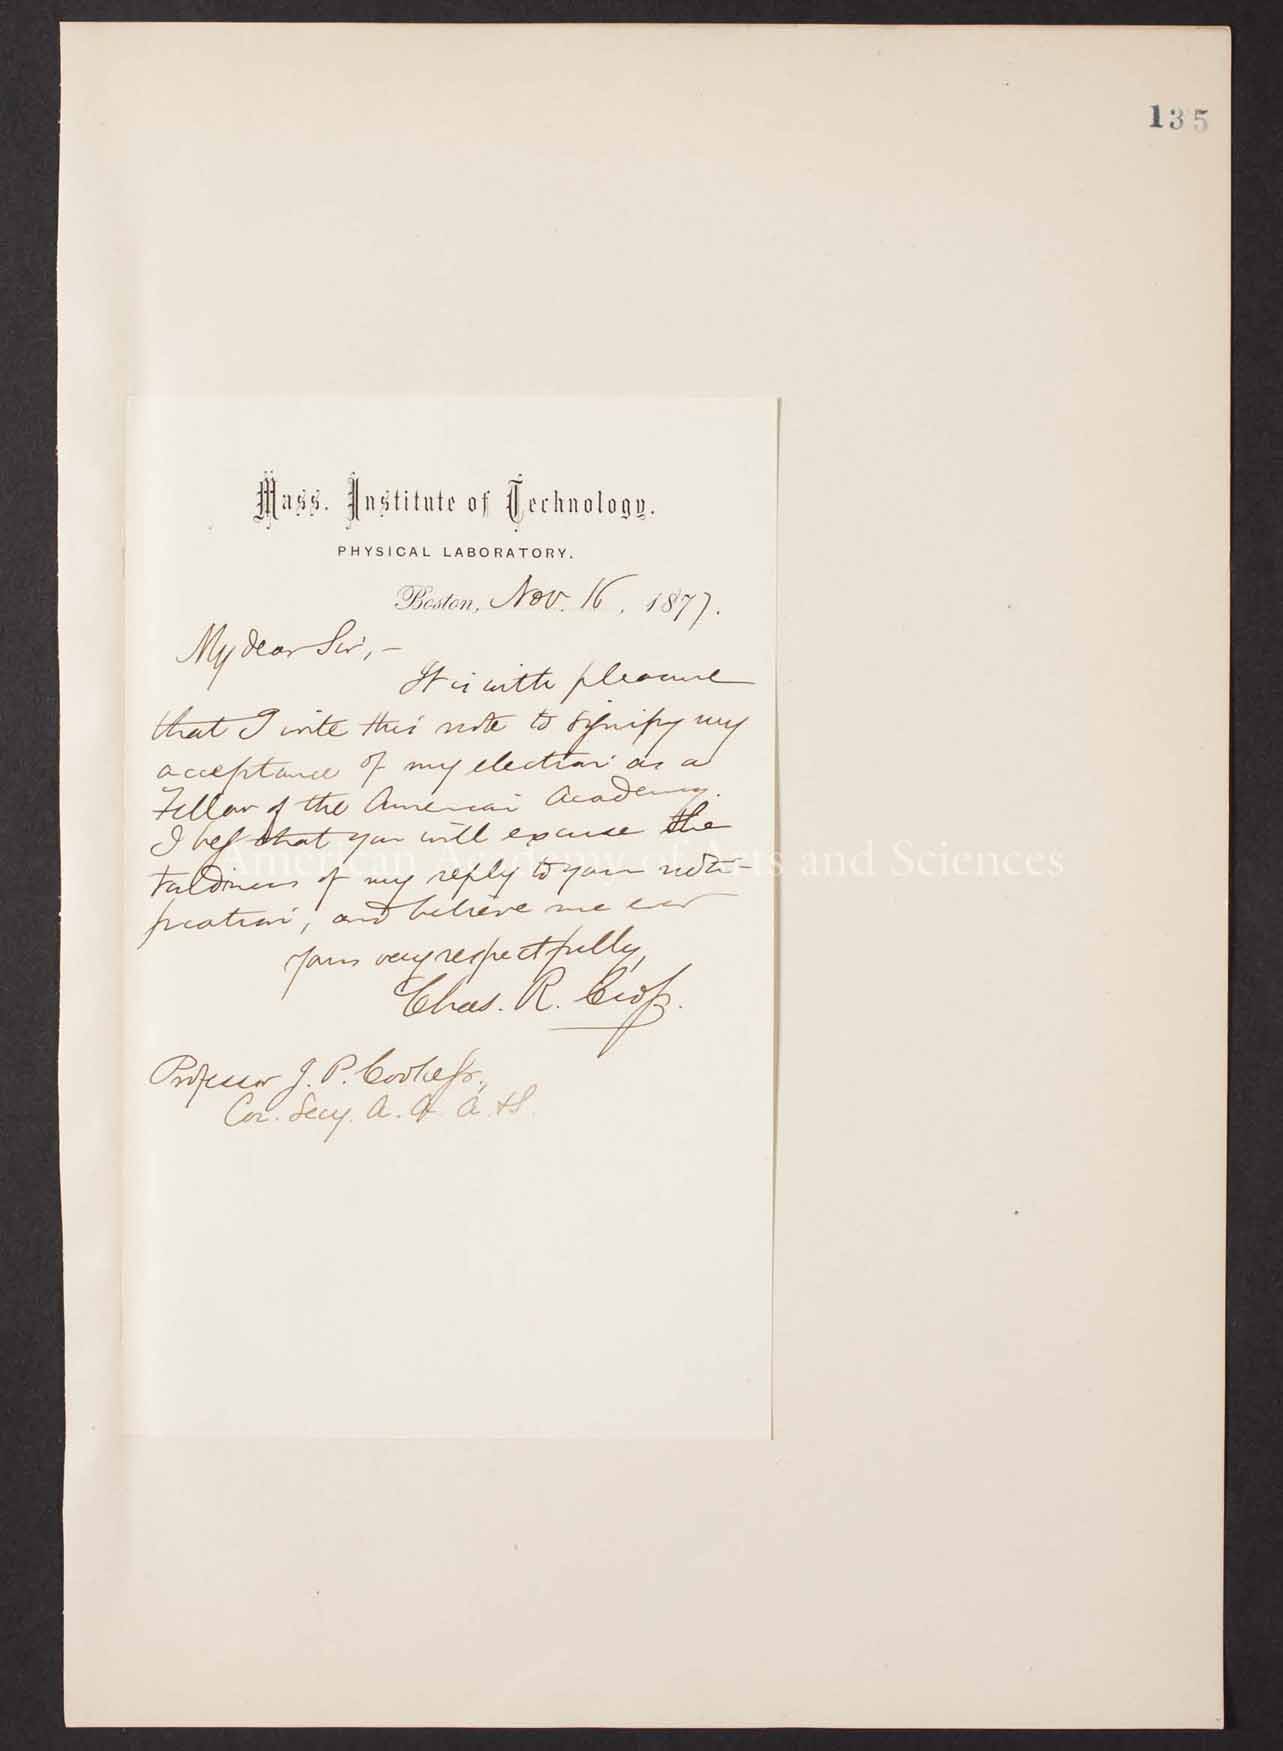 135
Mass. Institute of Technology.
PHYSICAL LABORATORY.
Boston, Nov. 16, 1877.
My dear Sir,—
It is with pleasure
that I write this note to signify my
acceptance of my election as a
Fellow of the American Academy.
I beg that you will excuse the
American Academy of Arts and Sciences
tardiness of my reply to your noti-
fication, and believe me ever
Yours very respectfully,
Chas. R. Cross.
Professor J. P. Cooke Jr.,
Cor. Secy. A. A. A. & S.